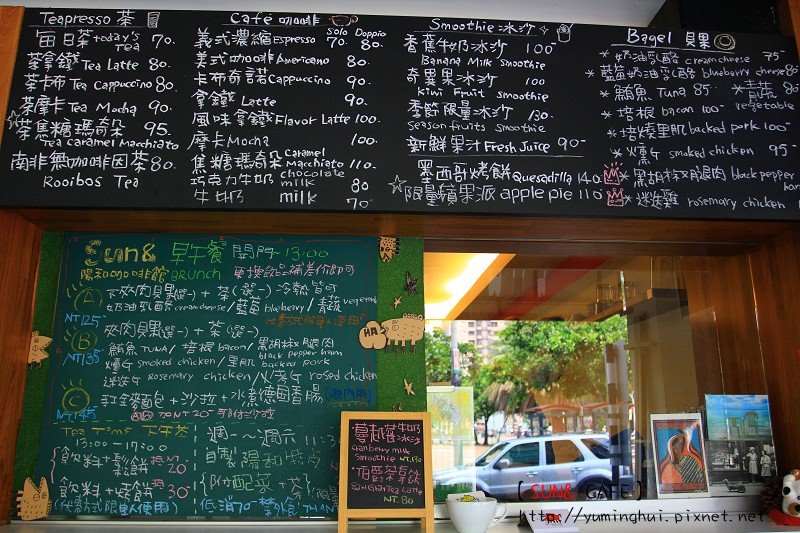 Teapresso 茶
每日茶 today's Tea 70.
茶拿鐵 Tea Latte 80.
茶卡布 Tea Cappuccino 80.
茶摩卡 Tea Mocha 90.
茶焦糖瑪奇朵 95.
Tea caramel Macchiato
南非無咖啡因茶 80.
Rooibos Tea
Café 咖啡
Solo Doppio
義式濃縮 Espresso 70. 80.
美式咖啡 Americano 80.
卡布奇諾 Cappuccino 90.
拿鐵 Latte 90.
風味拿鐵 Flavor Latte 100.
摩卡 Mocha 100.
焦糖瑪奇朵 Caramel Macchiato 110.
巧克力牛奶 chocolate milk 80
牛奶 milk 70
Smoothie 冰沙
香蕉牛奶冰沙 100
Banana Milk Smoothie
奇異果冰沙 100
kiwi Fruit Smoothie
季節限量冰沙 130
Season fruits Smoothie
新鮮果汁 Fresh Juice 90
墨西哥烤餅 Quesadilla 140
限量蘋果派 apple pie 110
Bagel 貝果
*奶油乳酪 cream cheese 75
*藍莓奶油乳酪 blueberry cheese 80
*鮪魚 Tuna 85 *青蔬 vegetable 80
*培根 bacon 100
*培燒里肌 backed pork 100
*燻雞 smoked chicken 95
*黑胡椒腿肉 black pepper ham
*迷迭雞 rosemary chicken
Sun& 早午餐 開門~13:00
陽和 咖啡館 Brunch 更換飲品補差價即可
A NT125 夾肉貝果(選一) + 茶(選一) 冷熱皆可
奶油乳酪 cream cheese / 藍莓 blueberry / 青蔬 vegetable
B NT135 夾肉貝果(選一) + 茶(選一)
鮪魚 TUNA / 培根 bacon / 黑胡椒腿肉 black pepper ham
燻雞 smoked chicken / 里肌 backed pork
迷迭雞 Rosemary chicken / 火烤雞 rosed chicken
C NT145 麵包 + 沙拉 + 水煮德國香腸
Tea Time 下午茶
13:00-17:00
飲料 + 鬆餅 20
飲料 + 烤餅 30
週一~週六 11:3
低消70
HA
HELLO
蔓越莓牛奶冰沙
Cranberry milk
Smoothie NT.130
伯爵茶拿鐵
Tea Latte
NT. 80
[ SUN& CAFE ]
http://yuminghui.pixnet.net